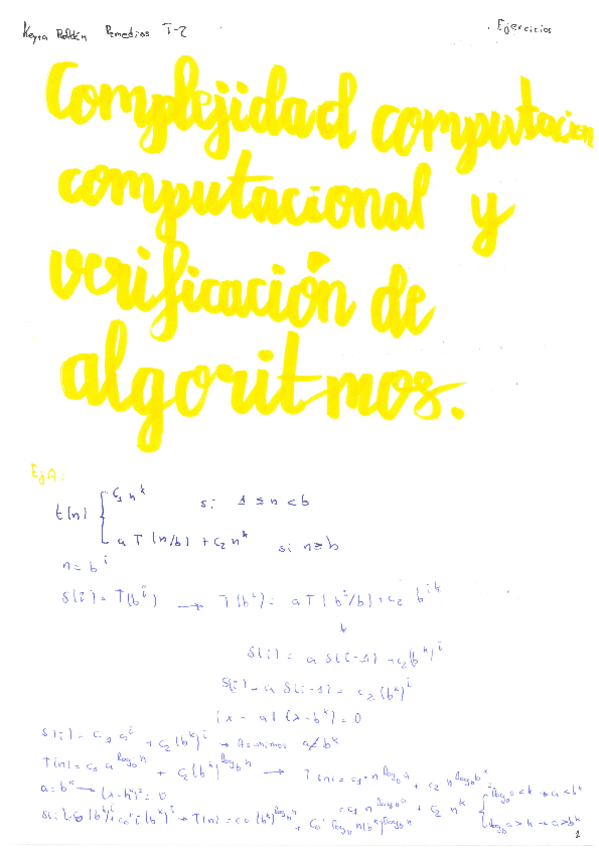 Keyra Roldán Remedios T-2
. Ejercicios
Complejidad computacion
computacional y
verificación de
algoritmos.
EjA:
t(n) { c₁ n^k si 1 ≤ n < b
a T (n/b) + c₂ n^k si n≥b
n = b^i
S(i) = T(b^i) → T(b^i) = a T(b^i/b) + c₂ b^ik
↓
S(i) = a S(i-1) + c₂(b^k)^i
S(i) - a S(i-1) = c₂(b^k)^i
(x - a)(x - b^k) = 0
S(i) = c₁ a^i + c₂(b^k)^i → Asumimos a≠b^k
T(n) = c₁ a^log_b n + c₂(b^k)^log_b n → T(n) = c₁ n^log_b a + c₂ n^log_b b^k
a = b^k → (x-b^k)² = 0
= c₁ n^log_b a + c₂ n^k { log_b a < k → a < b^k
log_b a > k → a > b^k
1